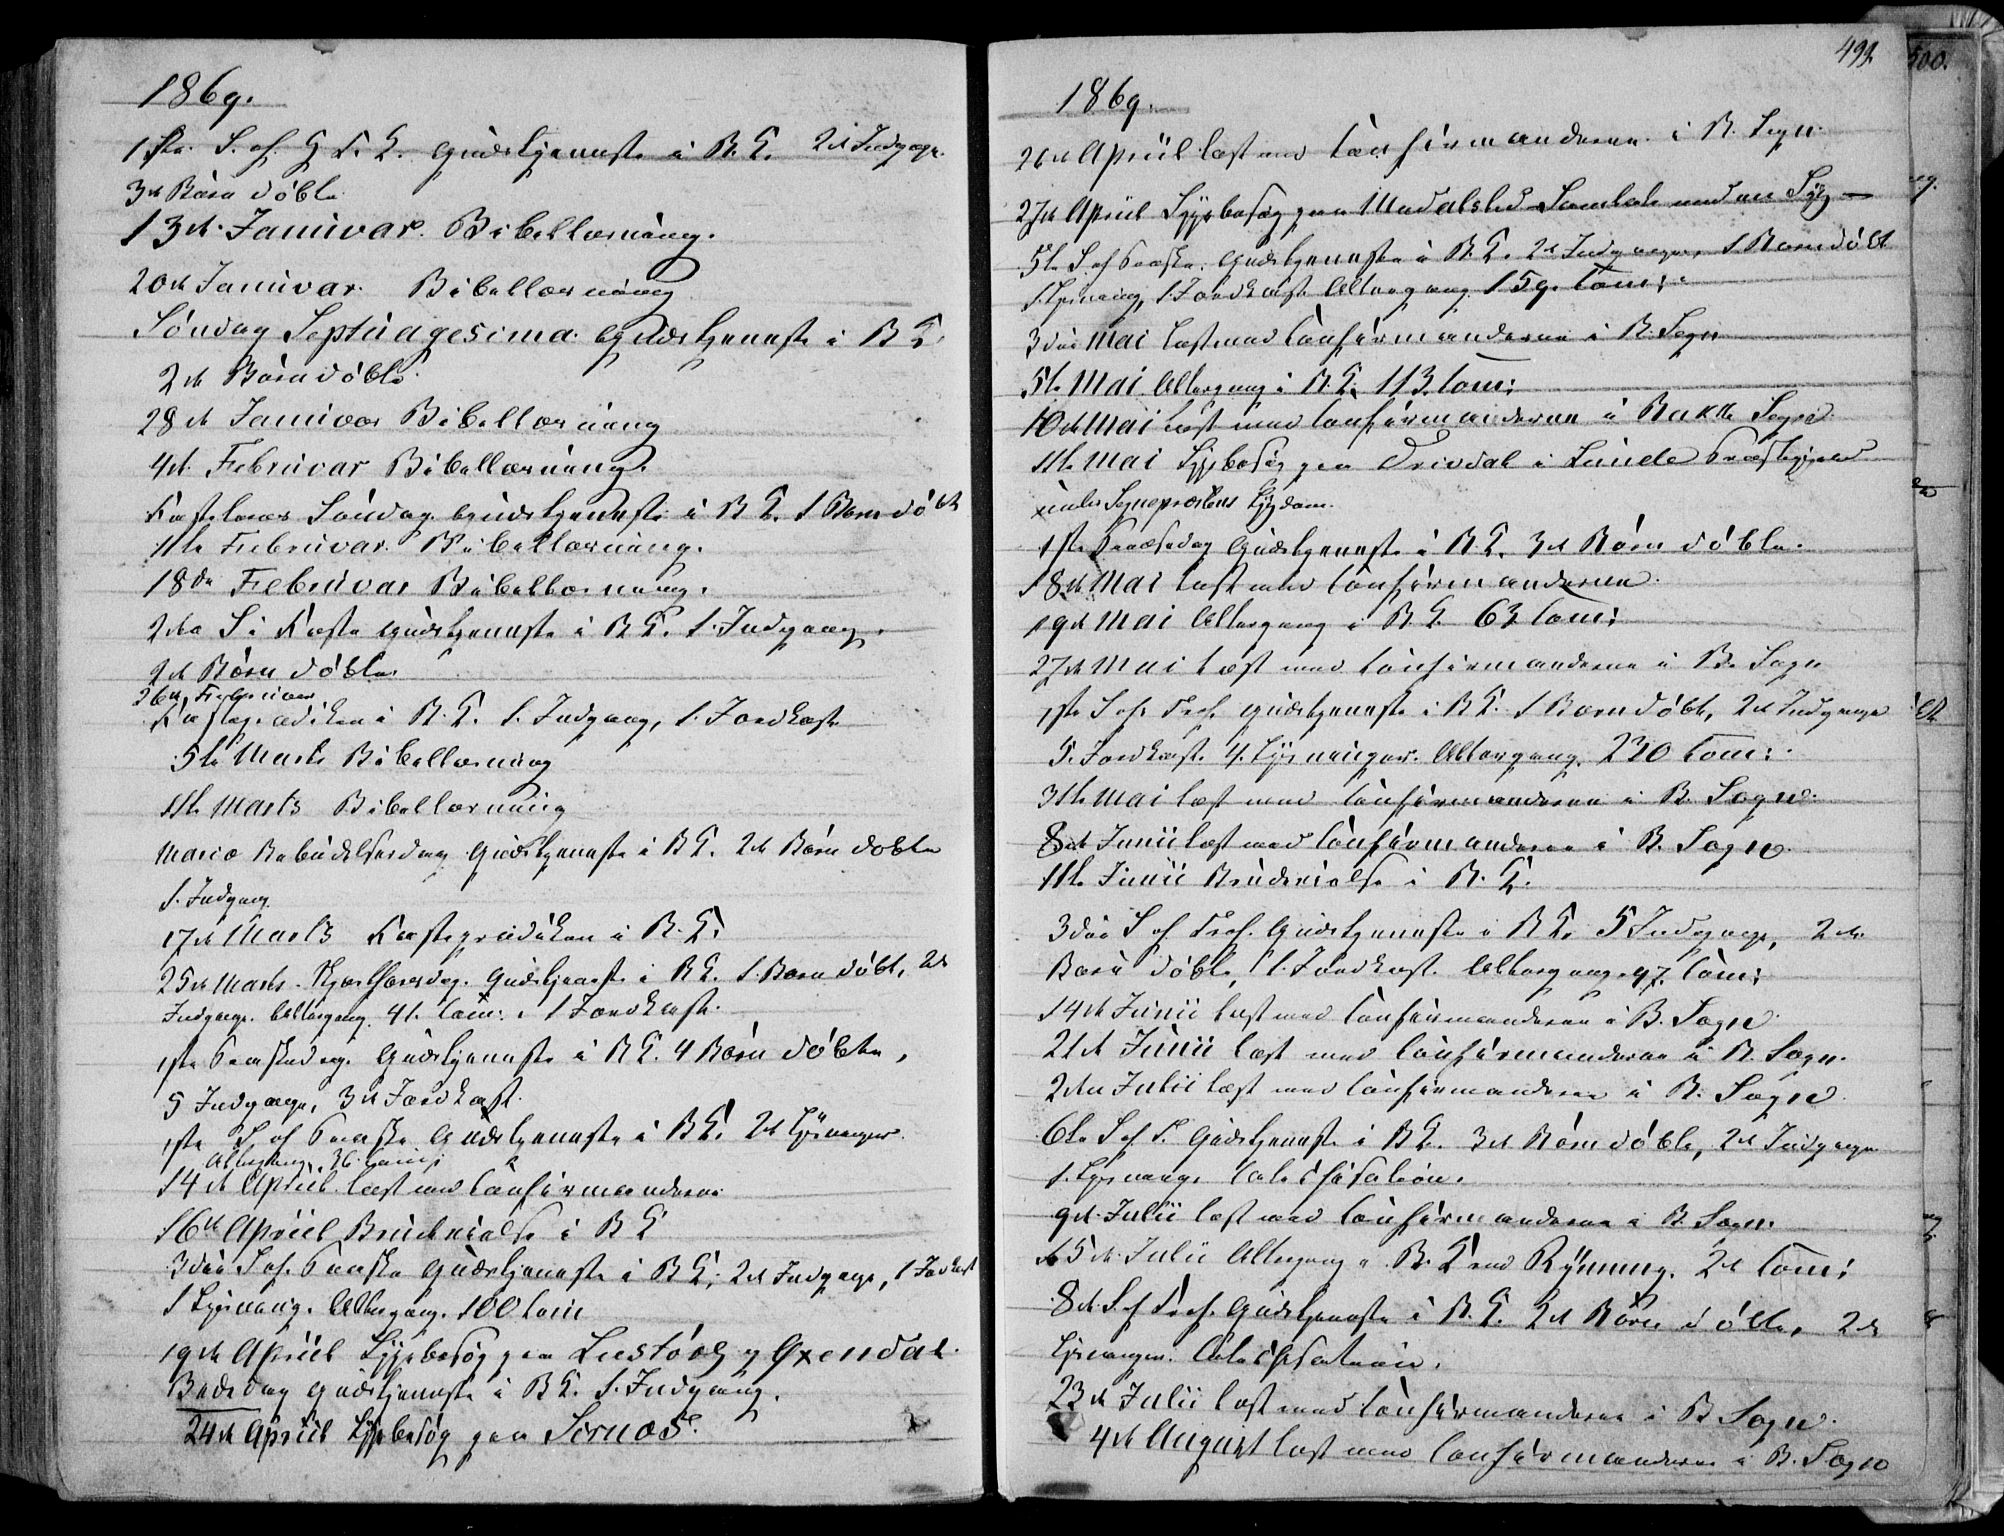 1869.
1ste S. ef. H 3. K. Gudstjeneste i B. K. 2de Indgange.
3de Børn døbte
13de Januvar. Bibellæsning.
20de Januvar. Bibellæsning
Søndag Septuagesima. Gudstjeneste i B K.
2de Børn døbte.
28de Januvar Bibellæsning
4de Februvar Bibellæsning.
Fastelavns Søndag. Gudstjeneste i B K. 1 Barn døbt
11te Februvar. Bibellæsning.
18de Februvar Bibellæsning.
2den S i Faste Gudstjeneste i B K. 1. Indgang.
2de Børn døbte
26de Februvar
Fasteprædiken i B. K. 1. Indgang, 1. Jordkast
5te Marts Bibellæsning
11te Marts Bibellæsning
Mariæ Bebudelsesdag Gudstjeneste i B K. 2de Børn døbte
1. Indgang.
17de Marts Fasteprædiken i B. K.
25de Marts. Skjærthorsdag. Gudstjeneste i B K. 1. Barn døbt, 2de
Indgange. Altergang. 41. Com: 1 Jordkast.
1ste Paaskedag. Gudstjeneste i B K. 4 Børn døbte,
5 Indgange, 3de Jordkast.
1ste S. ef Paaske Gudstjeneste i B K. 2de Lysninger.
Altergang. 36. Com:
14de April læst med Confirmanderne
16de April Brudevielse i B K
3die S. ef. Paaske Gudstjeneste i B K. 2de Indgange, 1 Jordkast
1 Lysning. Altergang. 100 Com
19de April Sygebesøg paa Lustøel og Øxendal.
Bededag Gudstjeneste i B K. 1. Indgang.
24de April Sygebesøg paa Sirnæs.
499.
500.
1869.
26de April læst med Confirmanderne i B. Sogn.
27de April Sygebesøg paa Samtale med en Syg
5te S ef Paaske. Gudstjeneste i B. K. 2de Indgange, 1 Barn døbt
1. Lysning, 1. Jordkast. Altergang 159. Com:
3die Mai læst med Confirmanderne i B. Sogn
5te Mai. Altergang i B. K. 113. Com:
10de Mai læst med Confirmanderne i Bakke Sogn.
11te Mai Sygebesøg paa Drivdal i Lunde Præstegjeld
under Sognepræstens Sygdom.
1ste Pintsedag Gudstjeneste i B. K. 3de Børn døbte.
18de Mai læst med Confirmanderne.
19de Mai Altergang i B K. 63 Com:
27de Mai læst med Confirmanderne i B. Sogn
1ste S ef. Tref. Gudstjeneste i B K. 1 Barn døbt, 2de Indgange
5. Jordkast. 4. Lysninger. Altergang. 230 Com:
31te Mai læst med Confirmanderne i B. Sogn.
8de Junii læst med Confirmanderne i B. Sogn.
11te Junii Brudevielse i B. K.
3die S ef Tref. Gudstjeneste i B K. 5 Indgange, 2de
Børn døbte, 1. Jordkast. Altergang. 97. Com:
14de Junii læst med Confirmanderne i B. Sogn.
21de Junii læst med Confirmanderne i B. Sogn.
2den Julii læst med Confirmanderne i B. Sogn.
6te S ef T. Gudstjeneste i B K. 3de Børn døbte, 2de Indgange
1. Lysning. Catechisation.
9de Julii læst med Confirmanderne i B. Sogn.
15de Julii Altergang i B. K 2de Com:
8de S. ef Tref. Gudstjeneste i B. K. 2de Børn døbte, 2de
Lysninger. Catechisation.
23de Julii læst med Confirmanderne i B Sogn.
4de August læst med Confirmanderne i B. Sogn